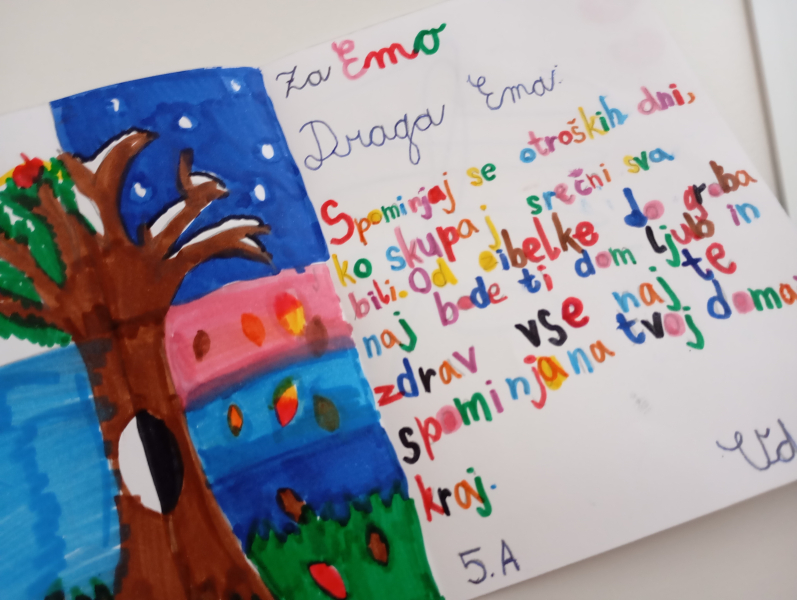 Za Emo
Draga Ema!
Spominjaj se otroških dni,
ko skupaj srečni sva
bili. Od zibelke do groba
naj bode ti dom ljub in
zdrav vse naj te
spominja na tvoj domač
kraj.
Vid
5.A